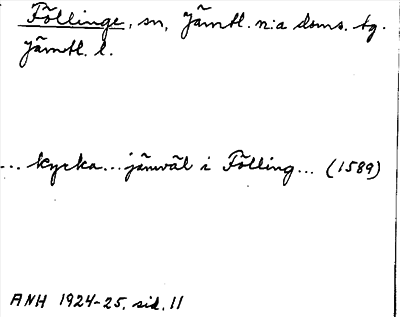 Föllinge, sn, Jämtl. n:a doms. tg.
Jämtl. l.
... kyrka ... jämväl i Fölling... (1589)
ANH 1924-25, sid. 11